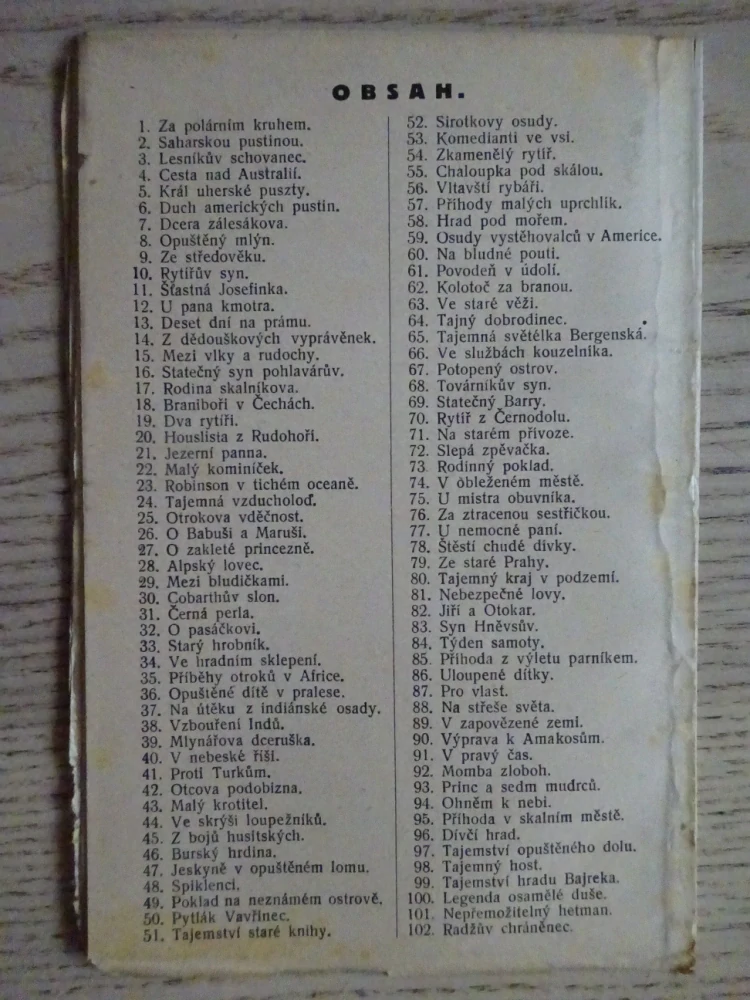 OBSAH.
1. Za polárním kruhem.
2. Saharskou pustinou.
3. Lesníkův schovanec.
4. Cesta nad Australií.
5. Král uherské puszty.
6. Duch amerických pustin.
7. Dcera zálesákova.
8. Opuštěný mlýn.
9. Ze středověku.
10. Rytířův syn.
11. Šťastná Josefinka.
12. U pana kmotra.
13. Deset dní na prámu.
14. Z dědouškových vyprávěnek.
15. Mezi vlky a rudochy.
16. Statečný syn pohlavárův.
17. Rodina skalníkova.
18. Braniboři v Čechách.
19. Dva rytíři.
20. Houslista z Rudohoří.
21. Jezerní panna.
22. Malý kominíček.
23. Robinson v tichém oceaně.
24. Tajemná vzducholoď.
25. Otrokova vděčnost.
26. O Babuši a Maruši.
27. O zakleté princezně.
28. Alpský lovec.
29. Mezi bludičkami.
30. Cobarthův slon.
31. Černá perla.
32. O pasáčkovi.
33. Starý hrobník.
34. Ve hradním sklepení.
35. Příběhy otroků v Africe.
36. Opuštěné dítě v pralese.
37. Na útěku z indiánské osady.
38. Vzbouření Indů.
39. Mlynářova dceruška.
40. V nebeské říši.
41. Proti Turkům.
42. Otcova podobizna.
43. Malý krotitel.
44. Ve skrýši loupežníků.
45. Z bojů husitských.
46. Burský hrdina.
47. Jeskyně v opuštěném lomu.
48. Spiklenci.
49. Poklad na neznámém ostrově.
50. Pytlák Vavřinec.
51. Tajemství staré knihy.
52. Sirotkovy osudy.
53. Komedianti ve vsi.
54. Zkamenělý rytíř.
55. Chaloupka pod skálou.
56. Vltavští rybáři.
57. Příhody malých uprchlík.
58. Hrad pod mořem.
59. Osudy vystěhovalců v Americe.
60. Na bludné pouti.
61. Povodeň v údolí.
62. Kolotoč za branou.
63. Ve staré věži.
64. Tajný dobrodinec.
65. Tajemná světélka Bergenská.
66. Ve službách kouzelníka.
67. Potopený ostrov.
68. Továrníkův syn.
69. Statečný Barry.
70. Rytíř z Černodolu.
71. Na starém přívoze.
72. Slepá zpěvačka.
73. Rodinný poklad.
74. V obleženém městě.
75. U mistra obuvníka.
76. Za ztracenou sestřičkou.
77. U nemocné paní.
78. Štěstí chudé dívky.
79. Ze staré Prahy.
80. Tajemný kraj v podzemí.
81. Nebezpečné lovy.
82. Jiří a Otokar.
83. Syn Hněvsův.
84. Týden samoty.
85. Příhoda z výletu parníkem.
86. Uloupené dítky.
87. Pro vlast.
88. Na střeše světa.
89. V zapovězené zemi.
90. Výprava k Amakosům.
91. V pravý čas.
92. Momba zloboh.
93. Princ a sedm mudrců.
94. Ohněm k nebi.
95. Příhoda v skalním městě.
96. Dívčí hrad.
97. Tajemství opuštěného dolu.
98. Tajemný host.
99. Tajemství hradu Bajreka.
100. Legenda osamělé duše.
101. Nepřemožitelný hetman.
102. Radžův chráněnec.